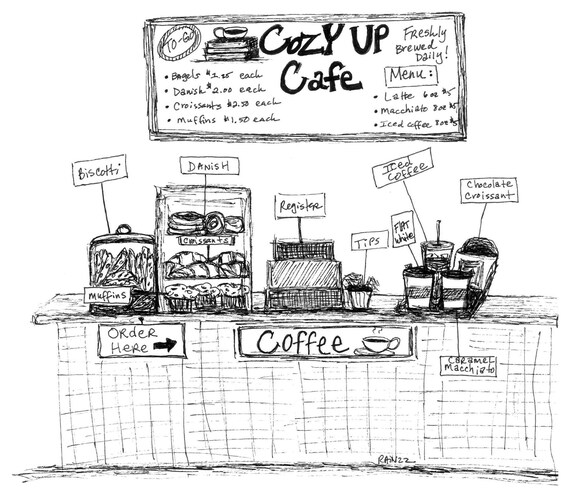 TO-GO
COZY UP
Cafe
Freshly
Brewed
Daily!
Menu:
• Bagels $1.25 each
• Danish $2.00 each
• Croissants $2.50 each
• Muffins $1.50 each
• Latte 6oz $5
• Macchiato 8oz $5
• Iced coffee 8oz $5
Biscotti
DANISH
Register
Iced
Coffee
Chocolate
Croissant
TIPS
FLAT
White
Croissants
Muffins
ORDER
HERE
Coffee
Caramel
Macchiato
RAIN22